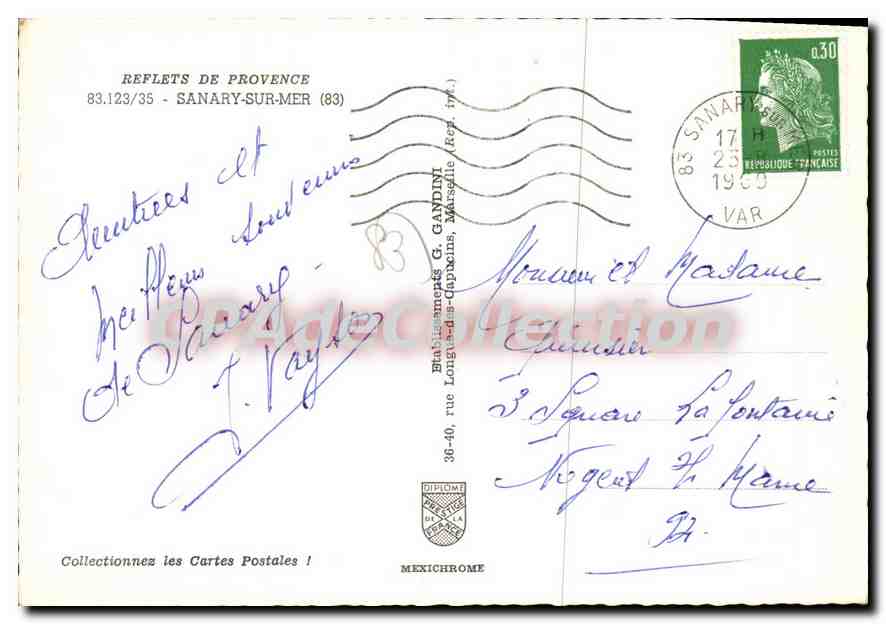 REFLETS DE PROVENCE
83.123/35 - SANARY-SUR-MER (83)
Amitiés et
meilleurs souvenirs
de Sanary
83
Collectionnez les Cartes Postales !
Etablissements G. GANDINI
36-40, rue Longue-des-Capucins, Marseille (Rep. int.)
DIPLOME
PRESTIGE
DE LA
FRANCE
MEXICHROME
0,30
POSTES
REPUBLIQUE FRANÇAISE
83 SANARY-SUR
17 H
23
1969
VAR
Monsieur et Madame
3 Square La Fontaine
Nogent s/ Marne
94.
CPAdeCollection